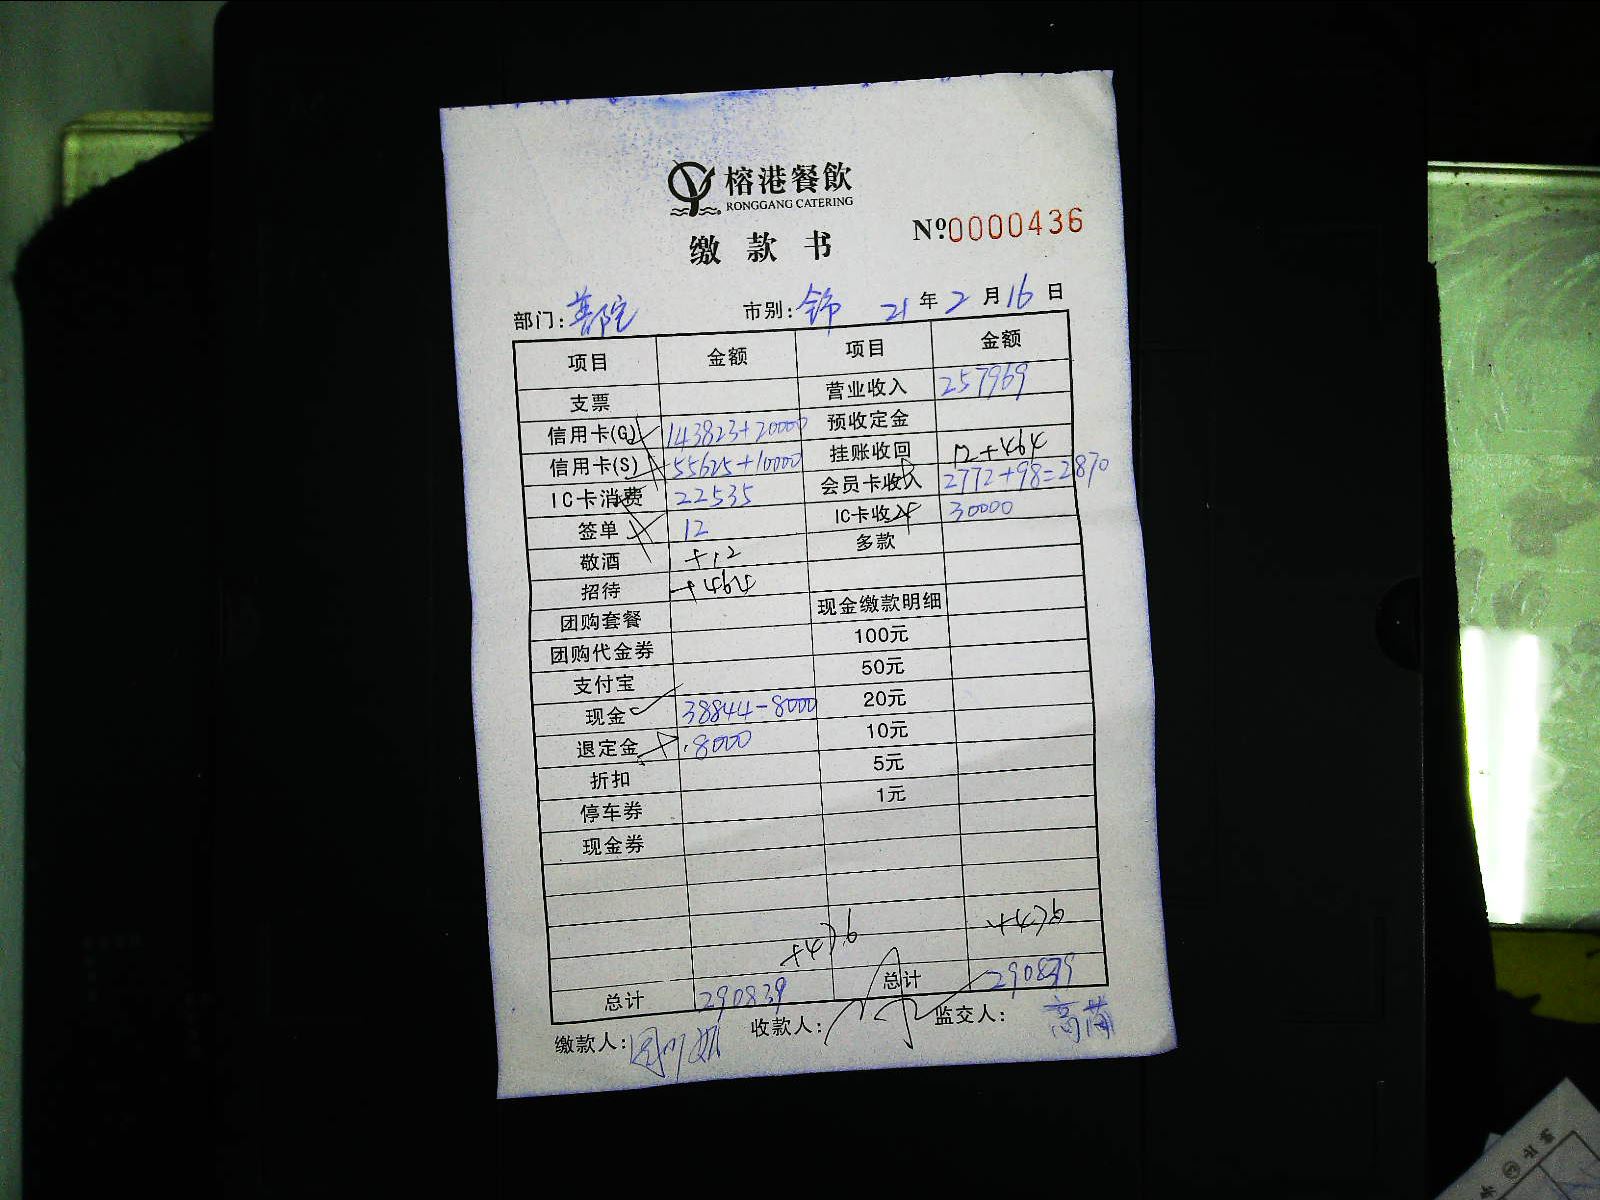 榕港餐飲
RONGGANG CATERING
缴款书
№:0000436
部门: 市别: 21年2月16日
项目 金额 项目 金额
支票 营业收入 257969
信用卡(G) 143823+20000 预收定金
信用卡(S) 55625+10000 挂账收回 12+464
IC卡消费 22535 会员卡收入 2772+98=2870
签单 12 IC卡收入 30000
敬酒 +12 多款
招待 +464
团购套餐 现金缴款明细
团购代金券 100元
支付宝 50元
现金 38844-8000 20元
退定金 8000 10元
折扣 5元
停车券 1元
现金券
+476 +476
总计 290839 总计 290839
缴款人: 收款人: 监交人: